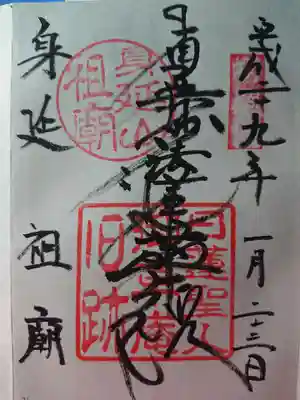 平成二十九年 一月二十三日
南無妙法蓮華経
身延 祖廟
身延山
祖廟
日蓮聖人
庵
旧跡